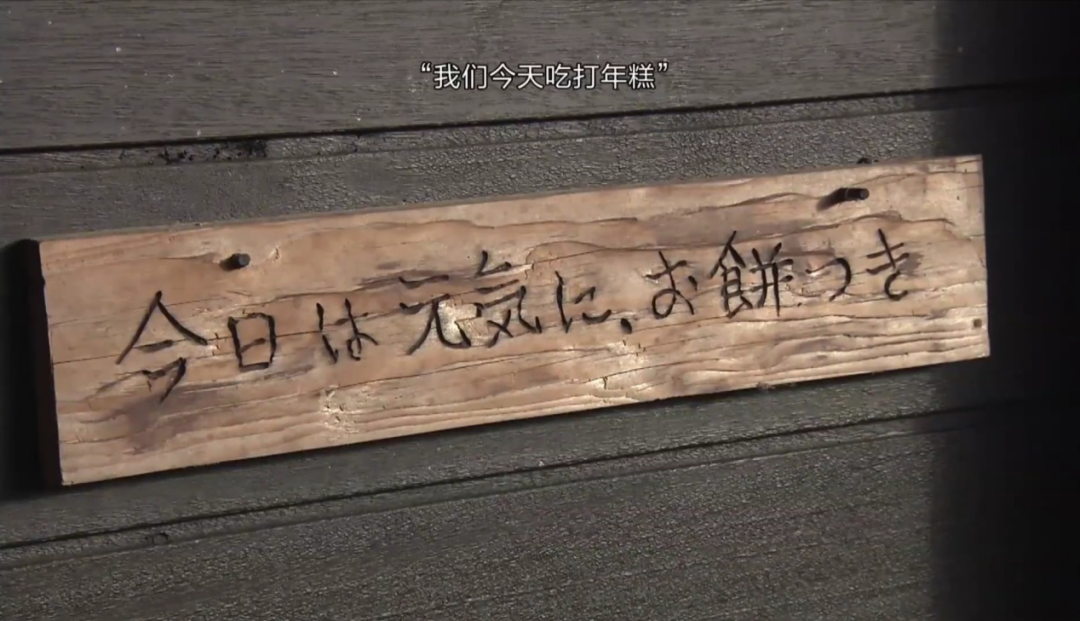 “我们今天吃打年糕”
今日は元気に、お餅つき